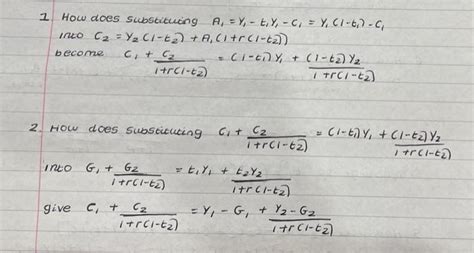 1. How does substituting A₁ = Y₁ - t₁Y₁ - C₁ = Y₁(1-t₁) - C₁
into C₂ = Y₂(1-t₂) + A₁(1+r(1-t₂))
become C₁ + C₂/(1+r(1-t₂)) = (1-t₁)Y₁ + (1-t₂)Y₂/(1+r(1-t₂))
2. How does substituting C₁ + C₂/(1+r(1-t₂)) = (1-t₁)Y₁ + (1-t₂)Y₂/(1+r(1-t₂))
into G₁ + G₂/(1+r(1-t₂)) = t₁Y₁ + t₂Y₂/(1+r(1-t₂))
give C₁ + C₂/(1+r(1-t₂)) = Y₁ - G₁ + Y₂-G₂/(1+r(1-t₂))